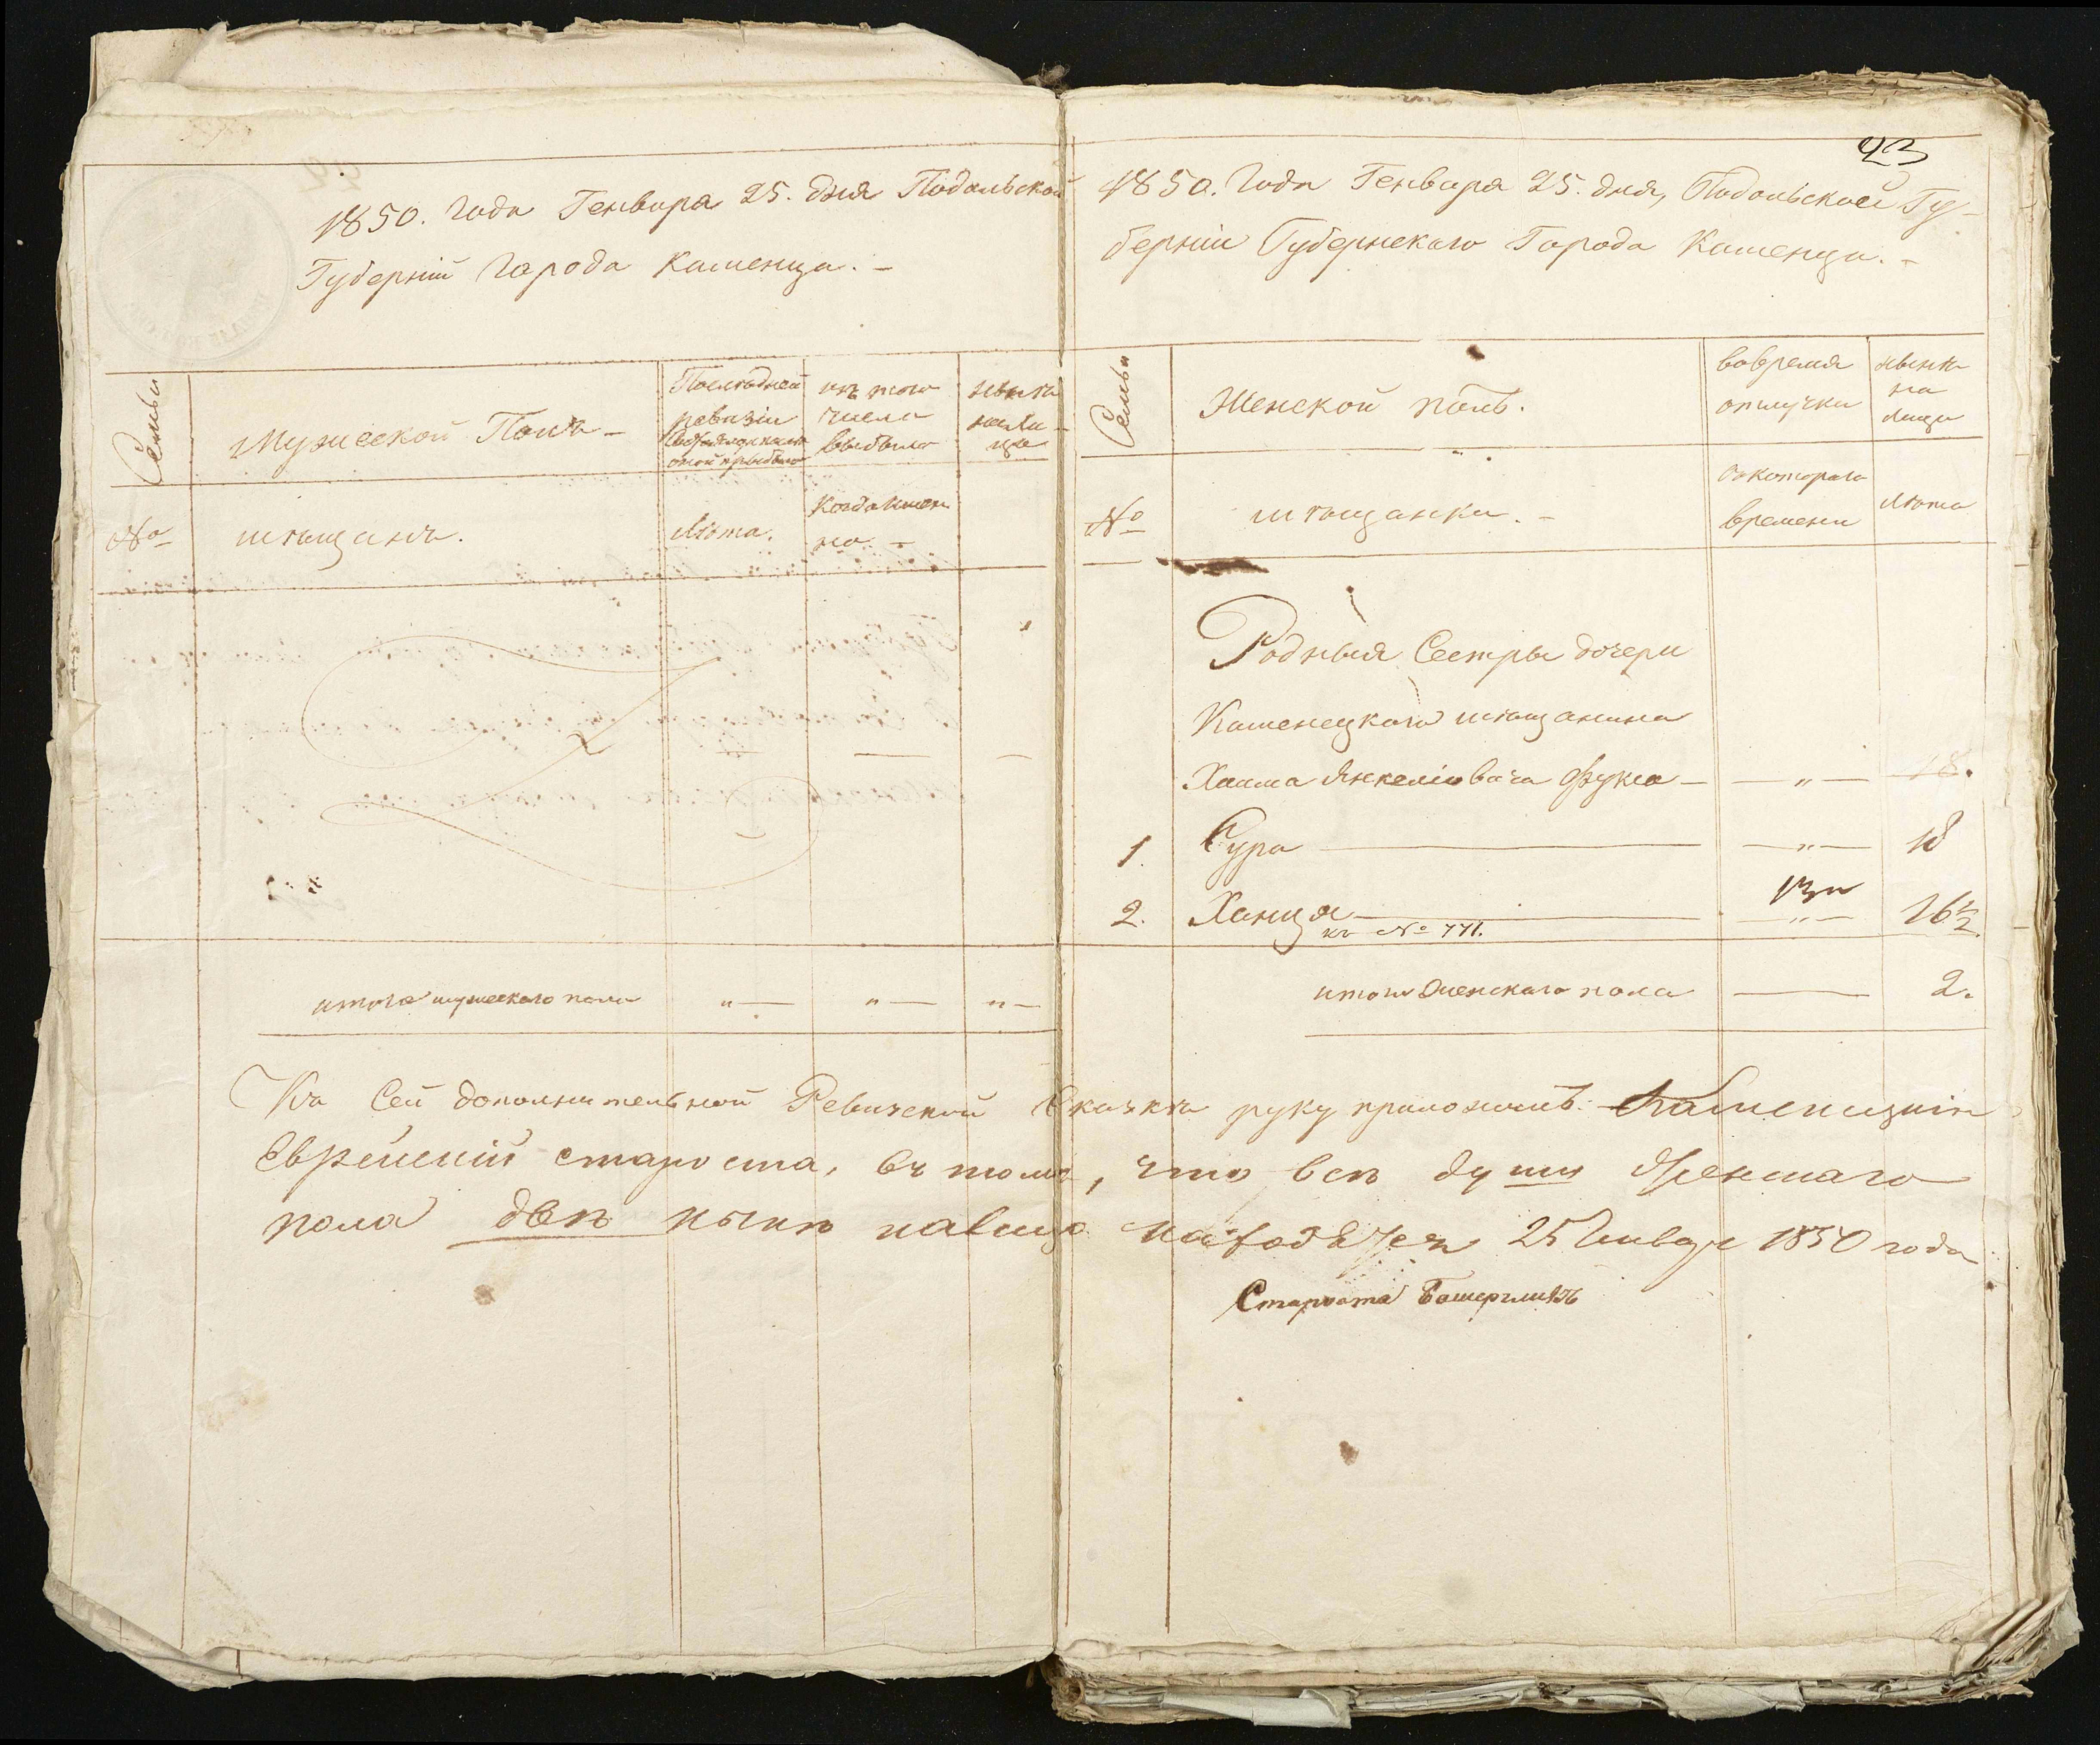 1850. года Генваря 25. дня Подольской
Губерніи города Каменца. –
Семьи
Мужеской Полъ –
Последней
ревизіи
оной прибыло
изъ того
числа
выбыло
ныне
на ли-
цо
№
мѣщанъ.
Лѣта.
Когда имен
но –
итого мужескаго пола " — " — " —
23
1850. Года Генваря 25. дня, Подольской Гу-
берніи Губернскаго Города Каменца. –
Семьи
Женской полъ.
вовремя
отлучки
нынѣ
на
лице
№
мѣщанки. –
скотораго
времени
Лѣта
Родныя Сестры дочери
Каменецкаго мѣщанина
Хаима Янкеліовича Фукса — — " — 18.
1. Сура — — " — 18
2. Ханця — — " — 16½
къ № 771.
итого женскаго пола — 2.
Къ Сей дополнительной Ревизской Сказкѣ руку приложилъ: Каменецкій
Еврейскій староста, въ томъ, что всѣ души женскаго
пола двѣ нынѣ налицо находятся 25 Генваря 1850 года
Староста